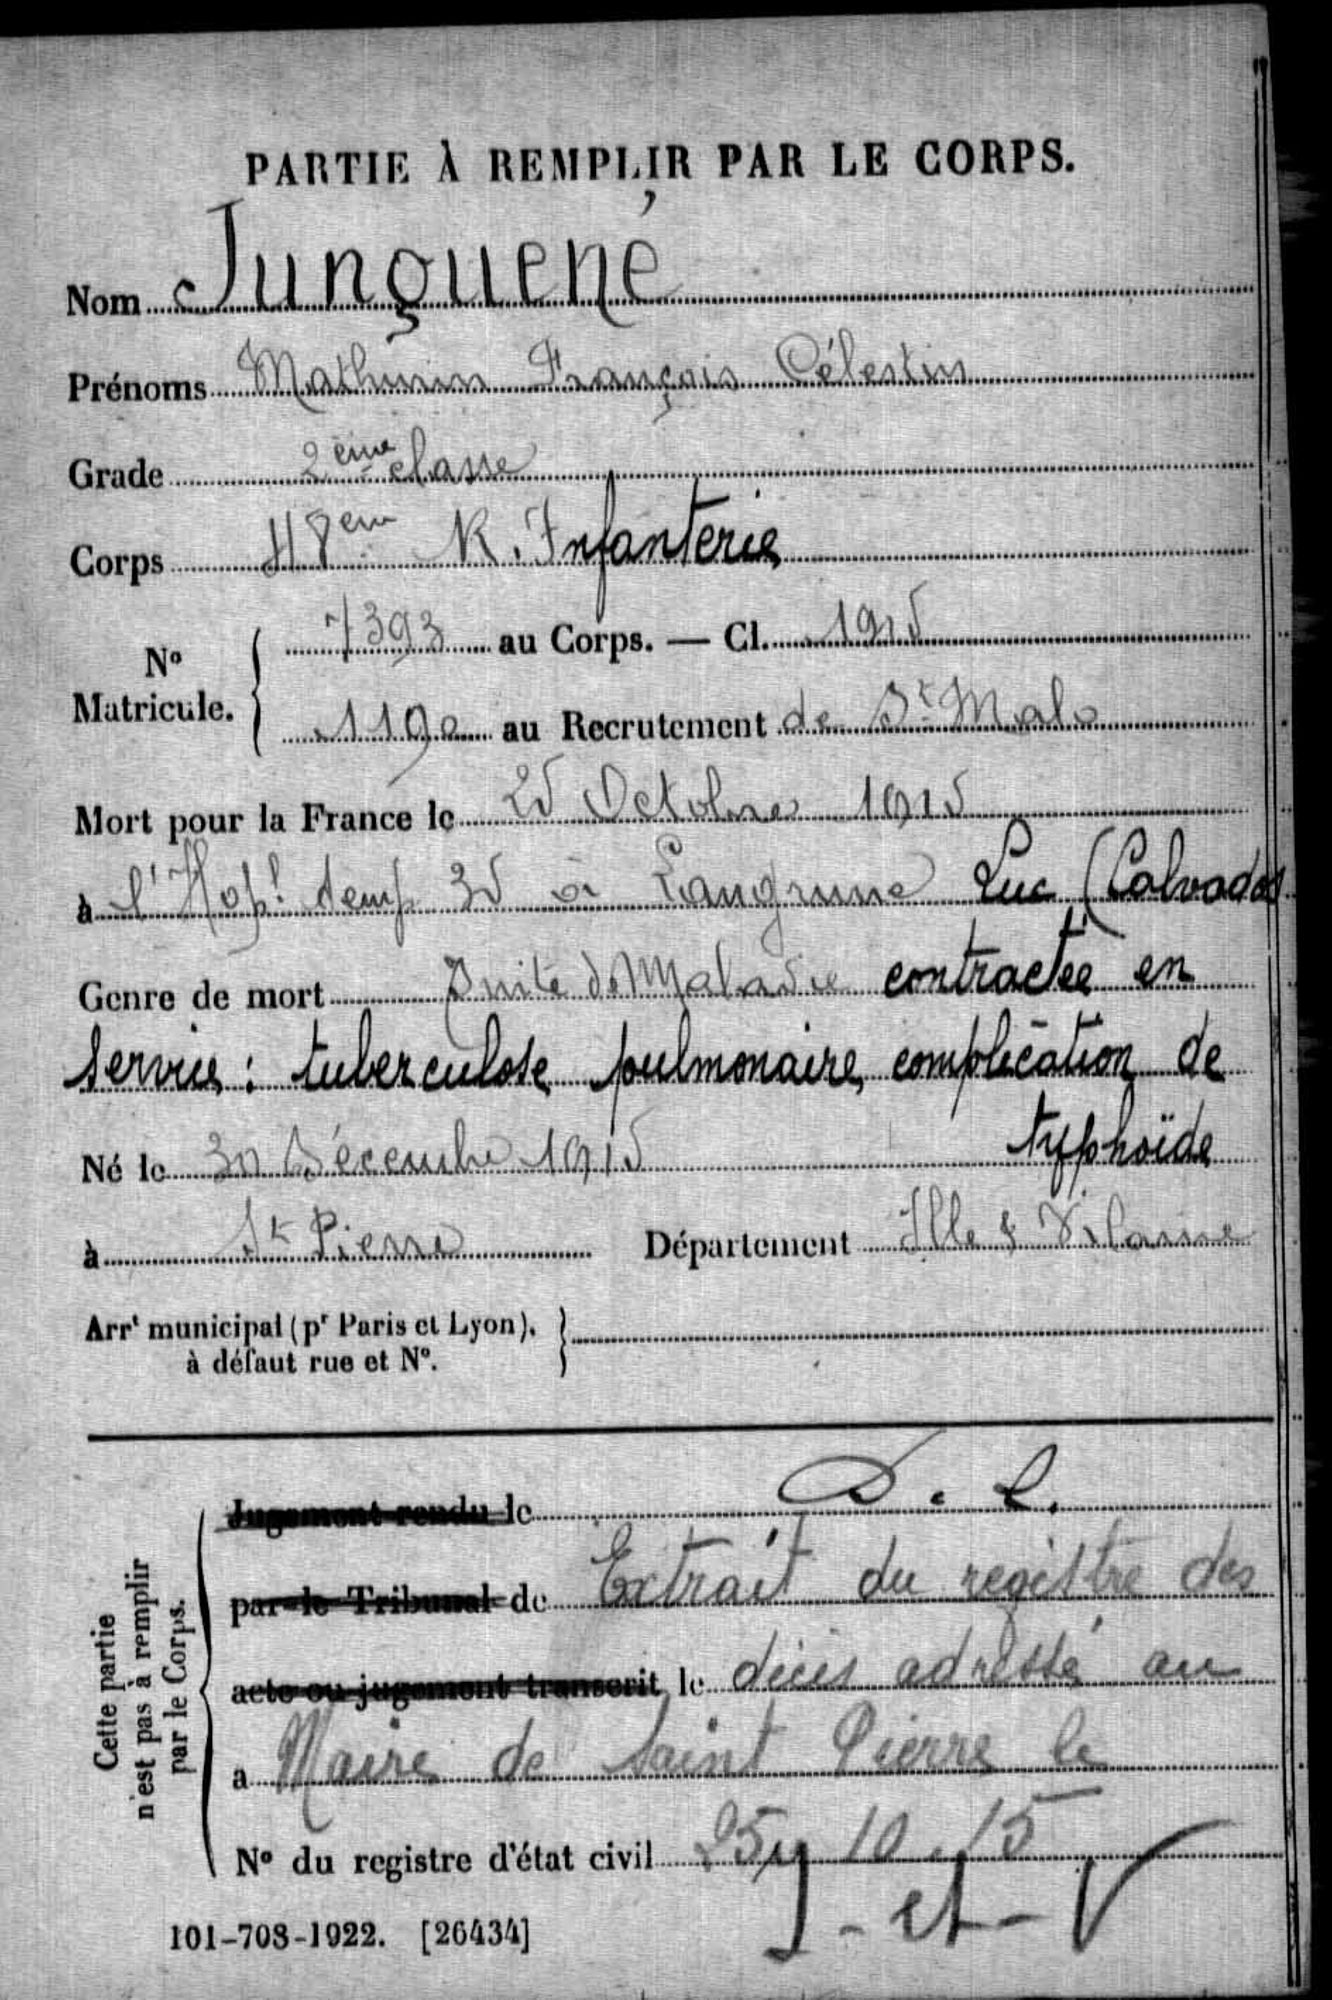 PARTIE À REMPLIR PAR LE CORPS.
Nom Junguené
Prénoms Mathurin François Célestin
Grade 2ème classe
Corps 48em R. Infanterie
No Matricule. 7393 au Corps. — Cl. 1915
1190 au Recrutement de St Malo
Mort pour la France le 25 Octobre 1915
à l'Hopl temp 35 à Langrune Luc (Calvados
Genre de mort Suite de Maladie contractée en
service : tuberculose pulmonaire, complication de
typhoïde
Né le 30 Décembre 1915
à St Pierre Département Ille & Vilaine
Arrt municipal (pr Paris et Lyon), à défaut rue et No.
Cette partie n'est pas à remplir par le Corps.
Jugement rendu le D. C.
par le Tribunal de Extrait du registre des
acte ou jugement transcrit le décès adressé au
a Maire de Saint Pierre le
No du registre d'état civil 25 10 15
I-et-V
101-708-1922. [26434]